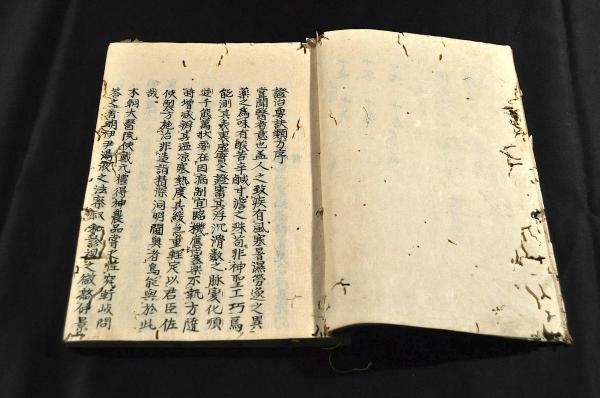 證治要訣類方序
嘗聞醫者意也盖人之致疾有風寒暑濕勞逸之異
藥之為味有酸苦辛鹹甘澹之殊苟非神聖工巧烏
能測其表裏虛實之證審其浮沉滑數之脉變化頃
千態萬狀要在因病制宜臨機應變藥不執方隨
時增减辨其温凉寒熱度其緩急重輕定以君臣佐
使製方施治非造詣精深洞明閫奥者烏能與於此
哉
本朝大醫院使戴元禮得神農品嘗之性究岐問
答之旨明伊尹湯液之法察叔和診之微仲景